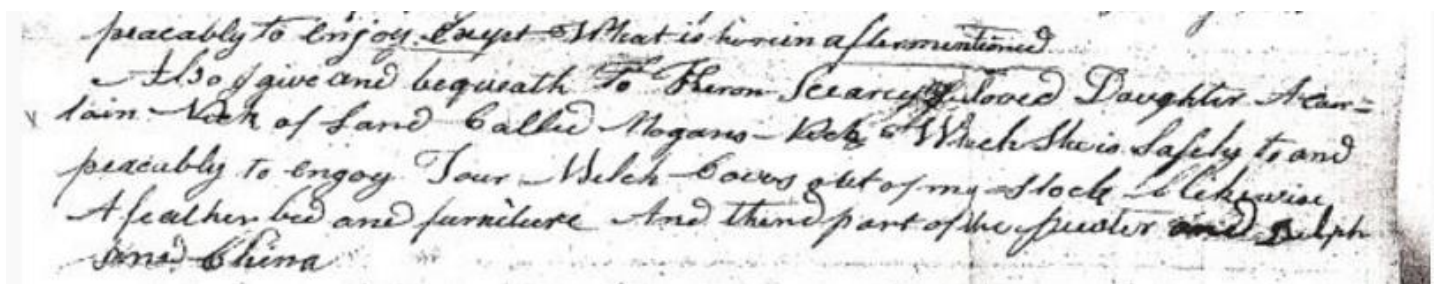 peacably to Enjoy. Except What is herein aftermentioned
Also I give and bequeath To Theron Searcy beloved Daughter A Cer=
tain Neck of Land Called Mogans Neck Which She is Safely to and
peacably to engoy Four Milch Cows out of my Stock likewise
A feather bed and furniture And third part of the pewter and Delph
and China